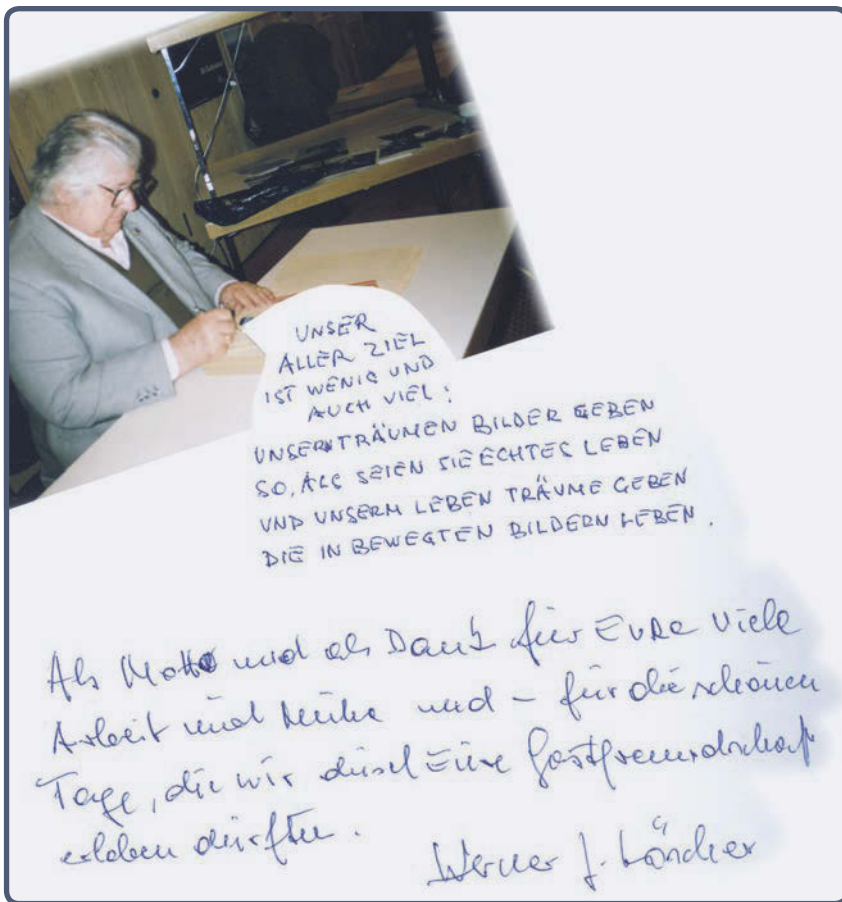 UNSER
ALLER ZIEL
IST WENIG UND
AUCH VIEL:
UNSERN TRÄUMEN BILDER GEBEN
SO, ALS SEIEN SIE ECHTES LEBEN
UND UNSERM LEBEN TRÄUME GEBEN
DIE IN BEWEGTEN BILDERN LEBEN.
Als Motto und als Dank für EURE viele
Arbeit und Mühe und – für die schönen
Tage, die wir durch Eure Gastfreundschaft
erleben durften.
Werner J.